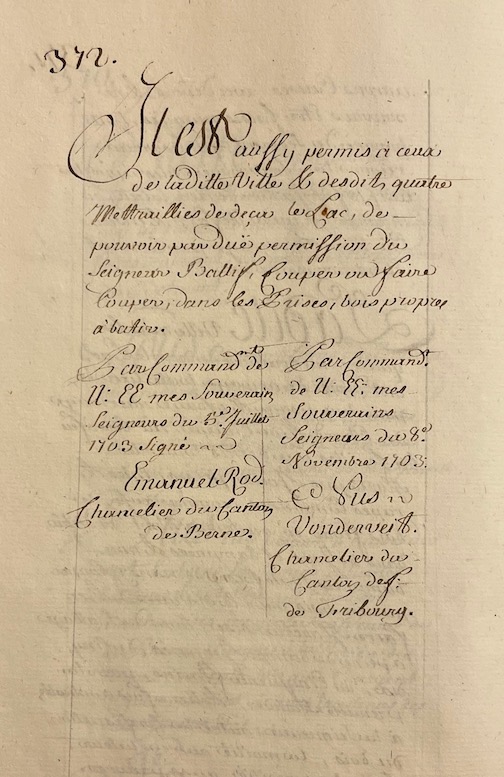 372.
Il est
aussy permis à ceux
de laditte Ville & desdits quatre
Mettraillies de deça le Lac, de
pouvoir par düe permission du
Seigneur Ballif, Couper ou faire
Couper, dans les Prises, bois propre
à batir.
Par Command.mt de
U: EE mes Souverain
Seigneurs du 5.e Juillet
1703 signé
Emanuel Rod.
Chancelier du Canton
de Berne.
Par Command.t
de U: EE: mes
Souverains
Seigneurs du 8.e
Novembre 1703.
Vonderveit.
Chancelier du
Canton de f:
de Fribourg.